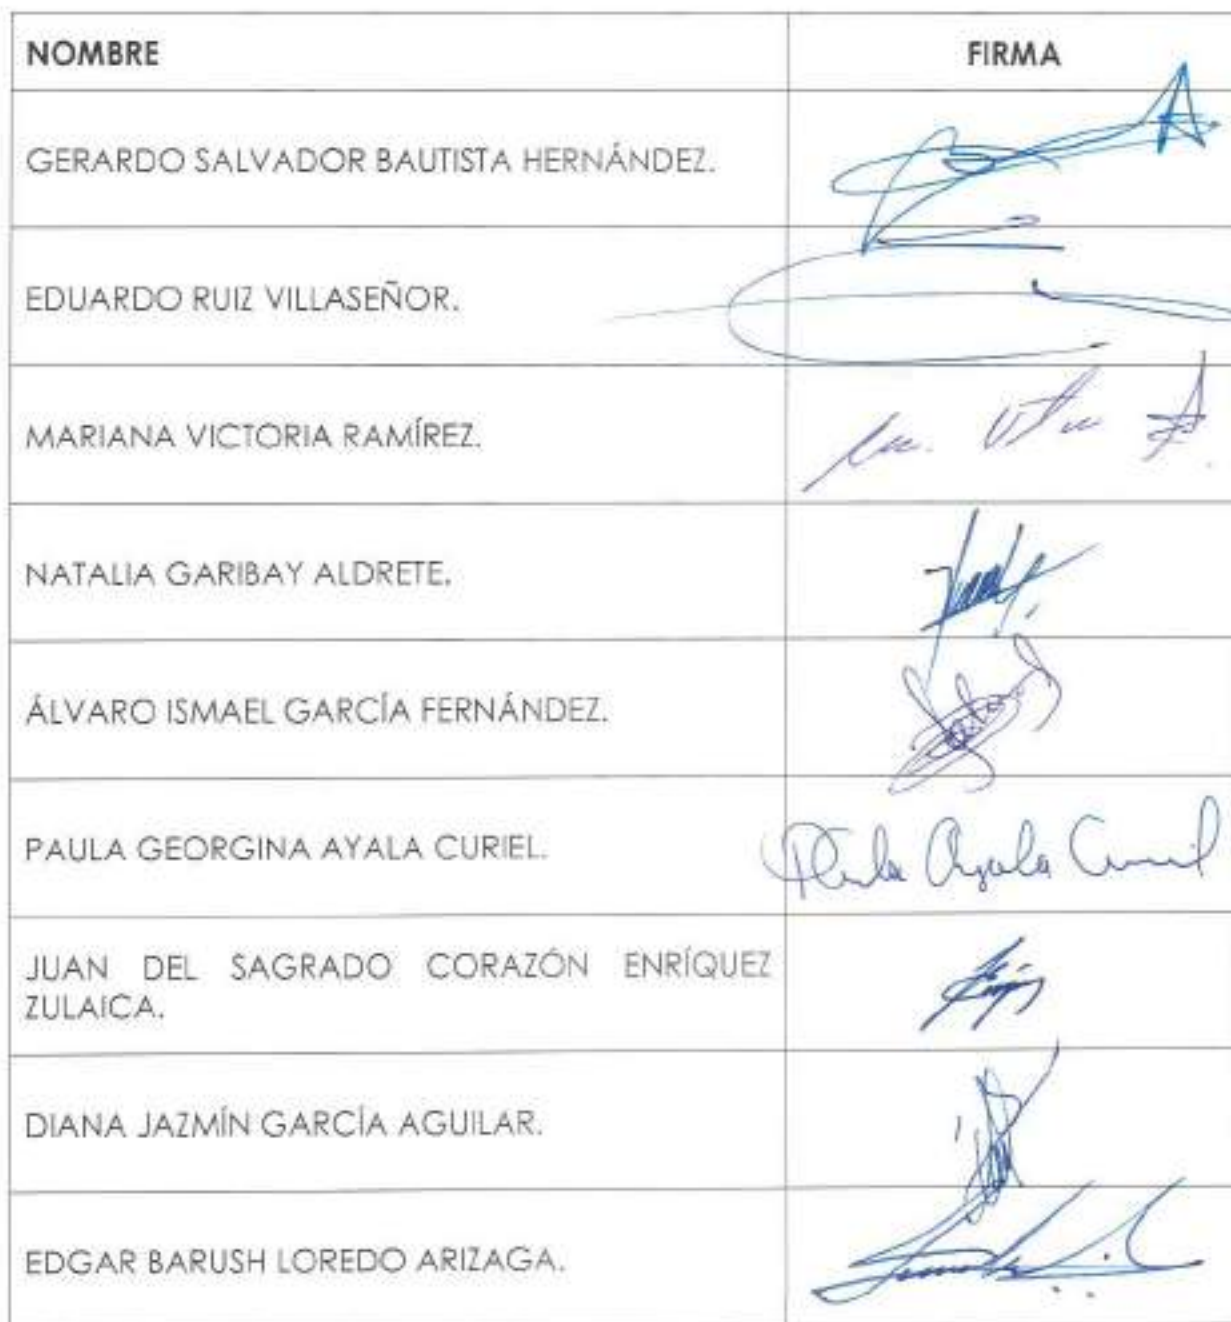 NOMBRE FIRMA
GERARDO SALVADOR BAUTISTA HERNÁNDEZ.
EDUARDO RUIZ VILLASEÑOR.
MARIANA VICTORIA RAMÍREZ.
NATALIA GARIBAY ALDRETE.
ÁLVARO ISMAEL GARCÍA FERNÁNDEZ.
PAULA GEORGINA AYALA CURIEL. Paula Ayala Curiel
JUAN DEL SAGRADO CORAZÓN ENRÍQUEZ
ZULAICA.
DIANA JAZMÍN GARCÍA AGUILAR.
EDGAR BARUSH LOREDO ARIZAGA.